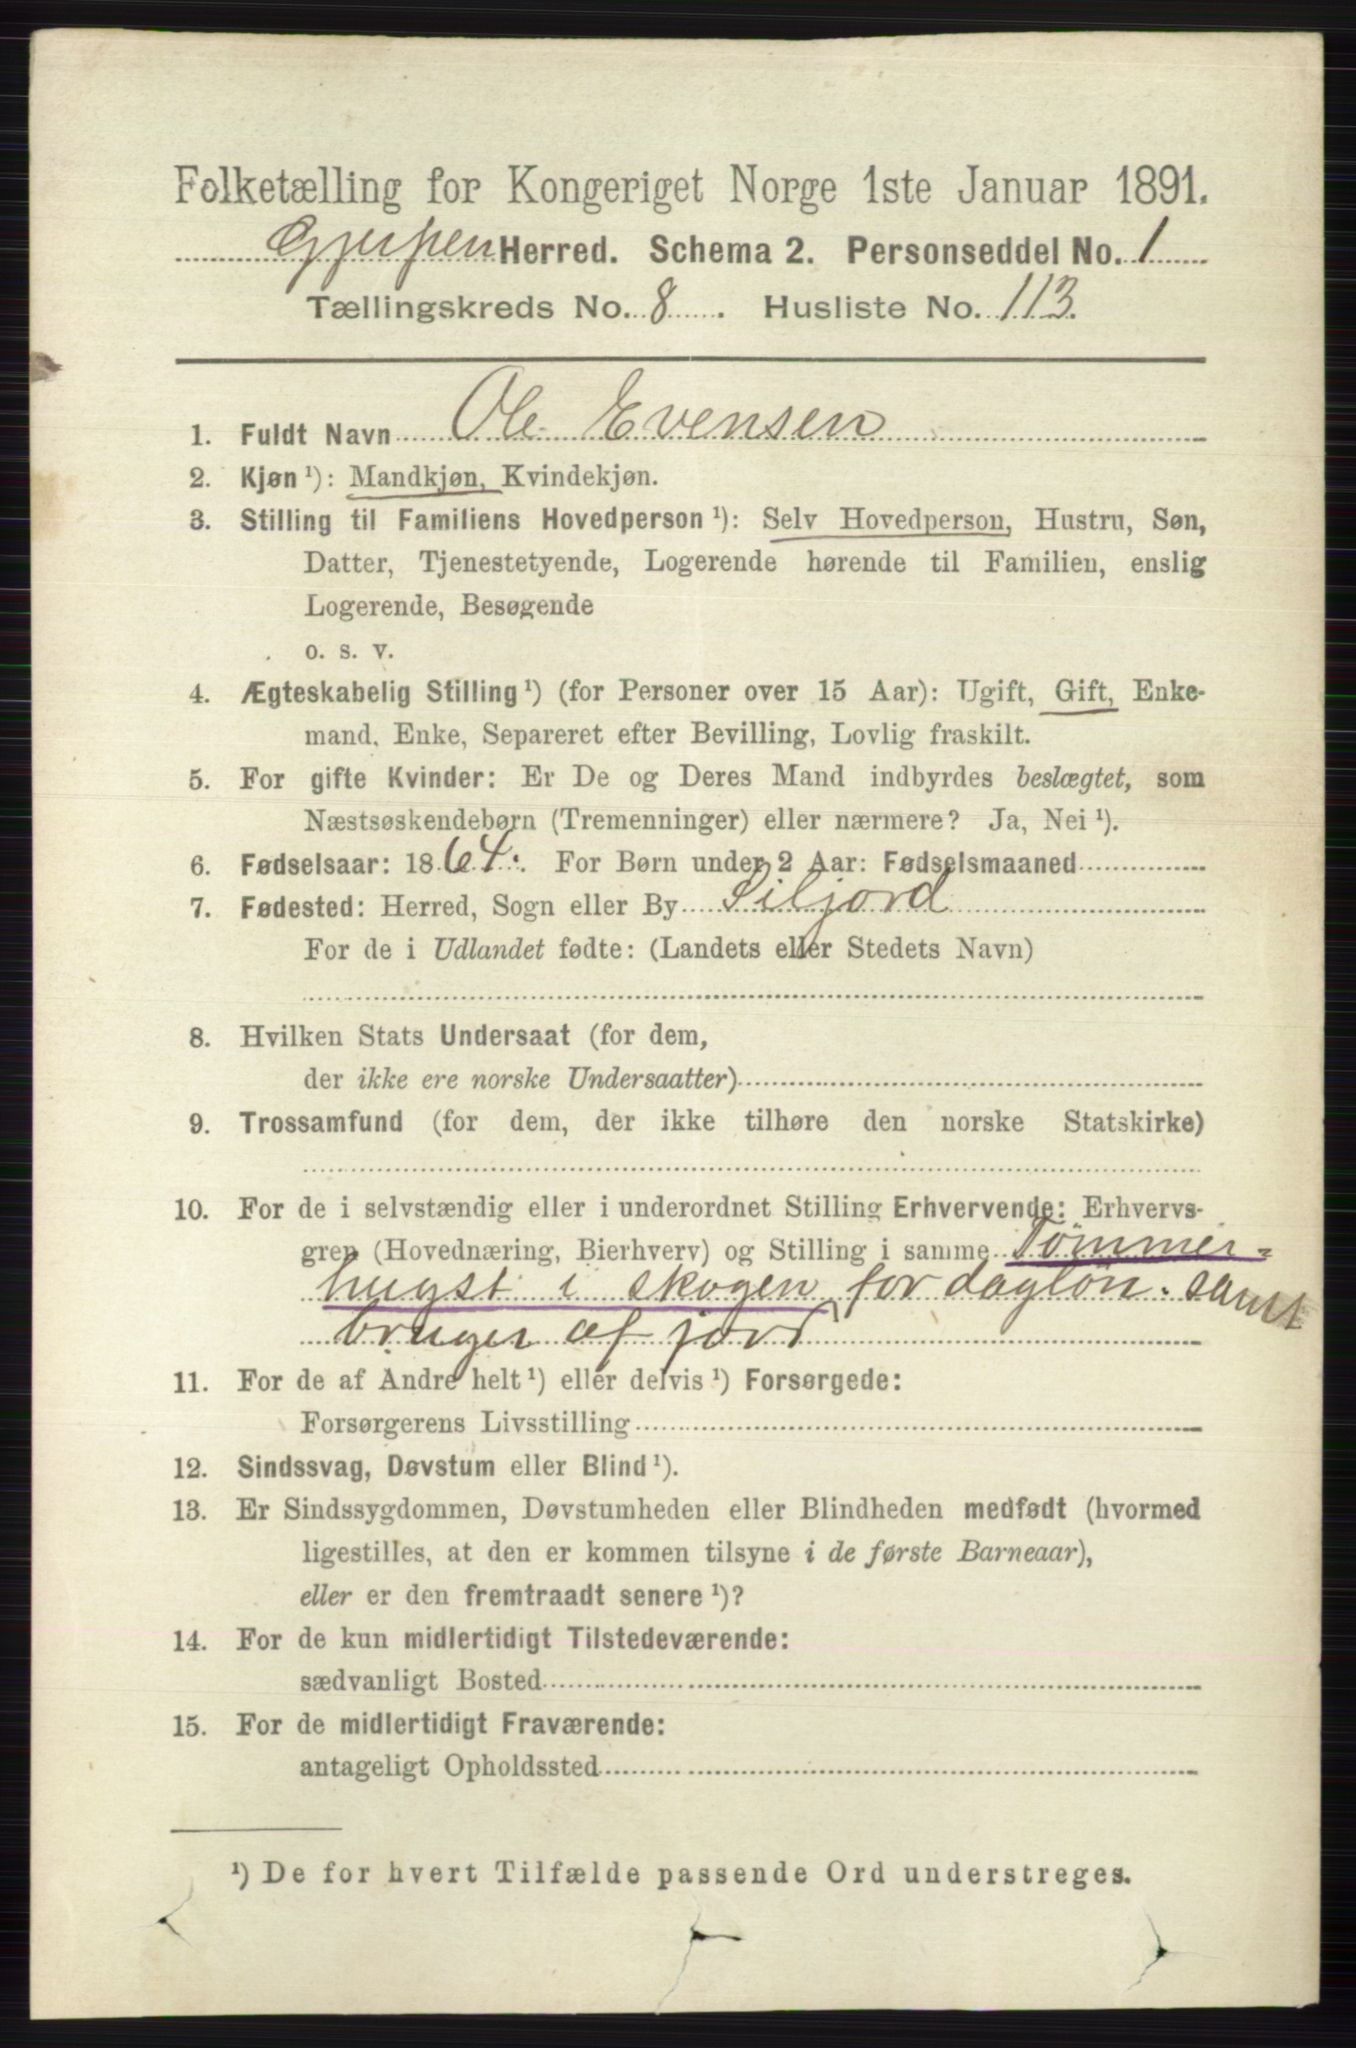 Folketælling for Kongeriget Norge 1ste Januar 1891.
Gjerpen Herred. Schema 2. Personseddel No. 1
Tællingskreds No. 8. Husliste No. 113.
1. Fuldt Navn Ole Evensen
2. Kjøn ¹): Mandkjøn, Kvindekjøn.
3. Stilling til Familiens Hovedperson ¹): Selv Hovedperson, Hustru, Søn,
Datter, Tjenestetyende, Logerende hørende til Familien, enslig
Logerende, Besøgende
o. s. v.
4. Ægteskabelig Stilling ¹) (for Personer over 15 Aar): Ugift, Gift, Enke-
mand, Enke, Separeret efter Bevilling, Lovlig fraskilt.
5. For gifte Kvinder: Er De og Deres Mand indbyrdes beslægtet, som
Næstsøskendebørn (Tremenninger) eller nærmere? Ja, Nei ¹).
6. Fødselsaar: 1864. For Børn under 2 Aar: Fødselsmaaned
7. Fødested: Herred, Sogn eller By Siljord
For de i Udlandet fødte: (Landets eller Stedets Navn)
8. Hvilken Stats Undersaat (for dem,
der ikke ere norske Undersaatter)
9. Trossamfund (for dem, der ikke tilhøre den norske Statskirke)
10. For de i selvstændig eller i underordnet Stilling Erhvervende: Erhvervs-
gren (Hovednæring, Bierhverv) og Stilling i samme Tømmer-
hugst i skogen for dagløn. samt
bruger af jord
11. For de af Andre helt ¹) eller delvis ¹) Forsørgede:
Forsørgerens Livsstilling
12. Sindssvag, Døvstum eller Blind ¹).
13. Er Sindssygdommen, Døvstumheden eller Blindheden medfødt (hvormed
ligestilles, at den er kommen tilsyne i de første Barneaar),
eller er den fremtraadt senere ¹)?
14. For de kun midlertidigt Tilstedeværende:
sædvanligt Bosted
15. For de midlertidigt Fraværende:
antageligt Opholdssted
¹) De for hvert Tilfælde passende Ord understreges.